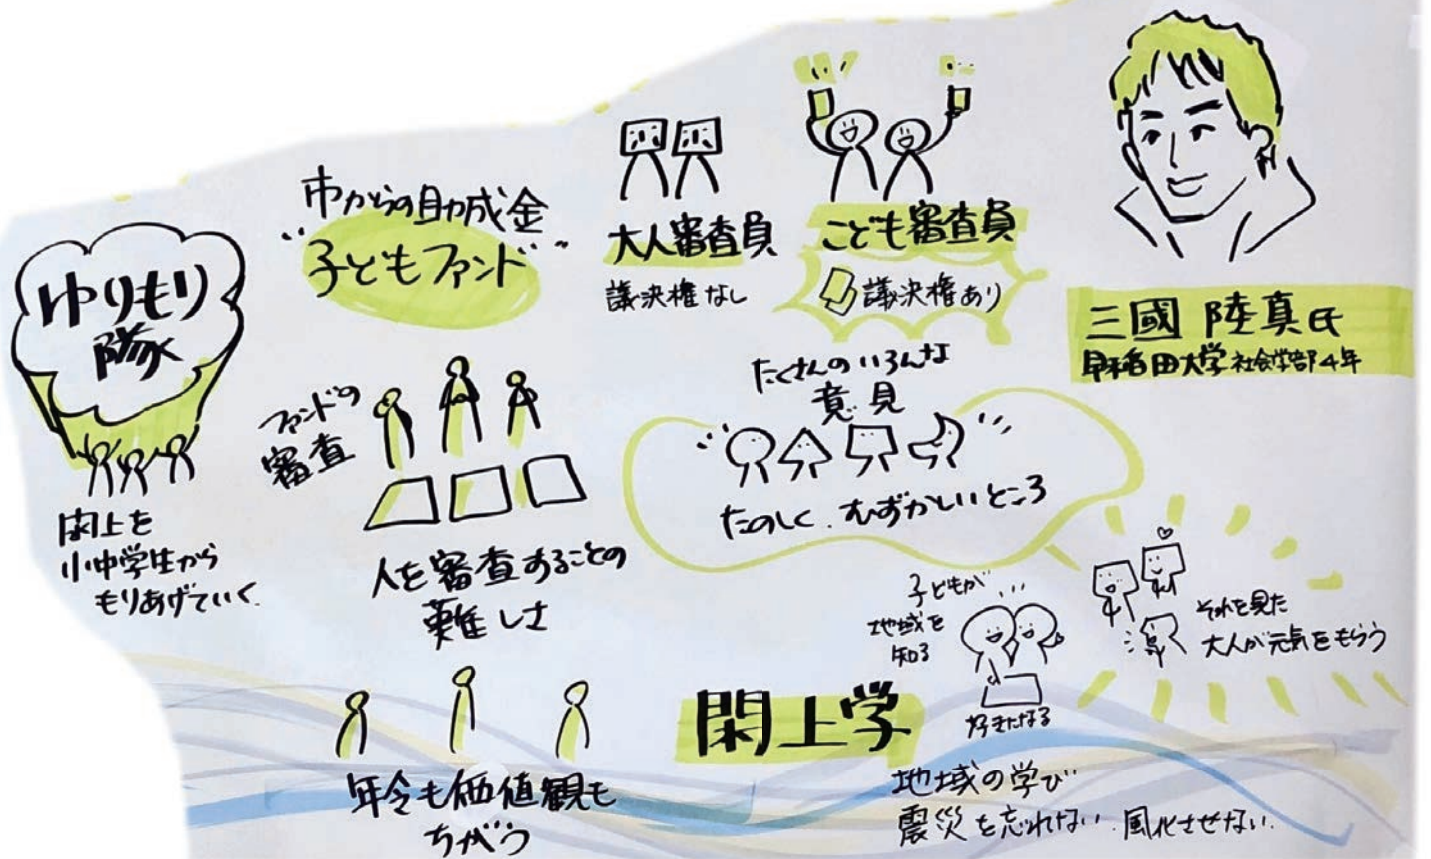 ゆりもり
隊
閖上を
小中学生から
もりあげていく
市からの助成金
"子どもファンド"
大人審査員
議決権なし
こども審査員
議決権あり
三國 陸真氏
早稲田大学 社会学部4年
ファンドの
審査
人を審査することの
難しさ
たくさんのいろんな
意見
たのしく、むずかしいところ
年令も価値観も
ちがう
閖上学
子どもが...
地域を
知る
好きになる
それを見た
大人が元気をもらう
地域の学び
震災を忘れない.風化させない.